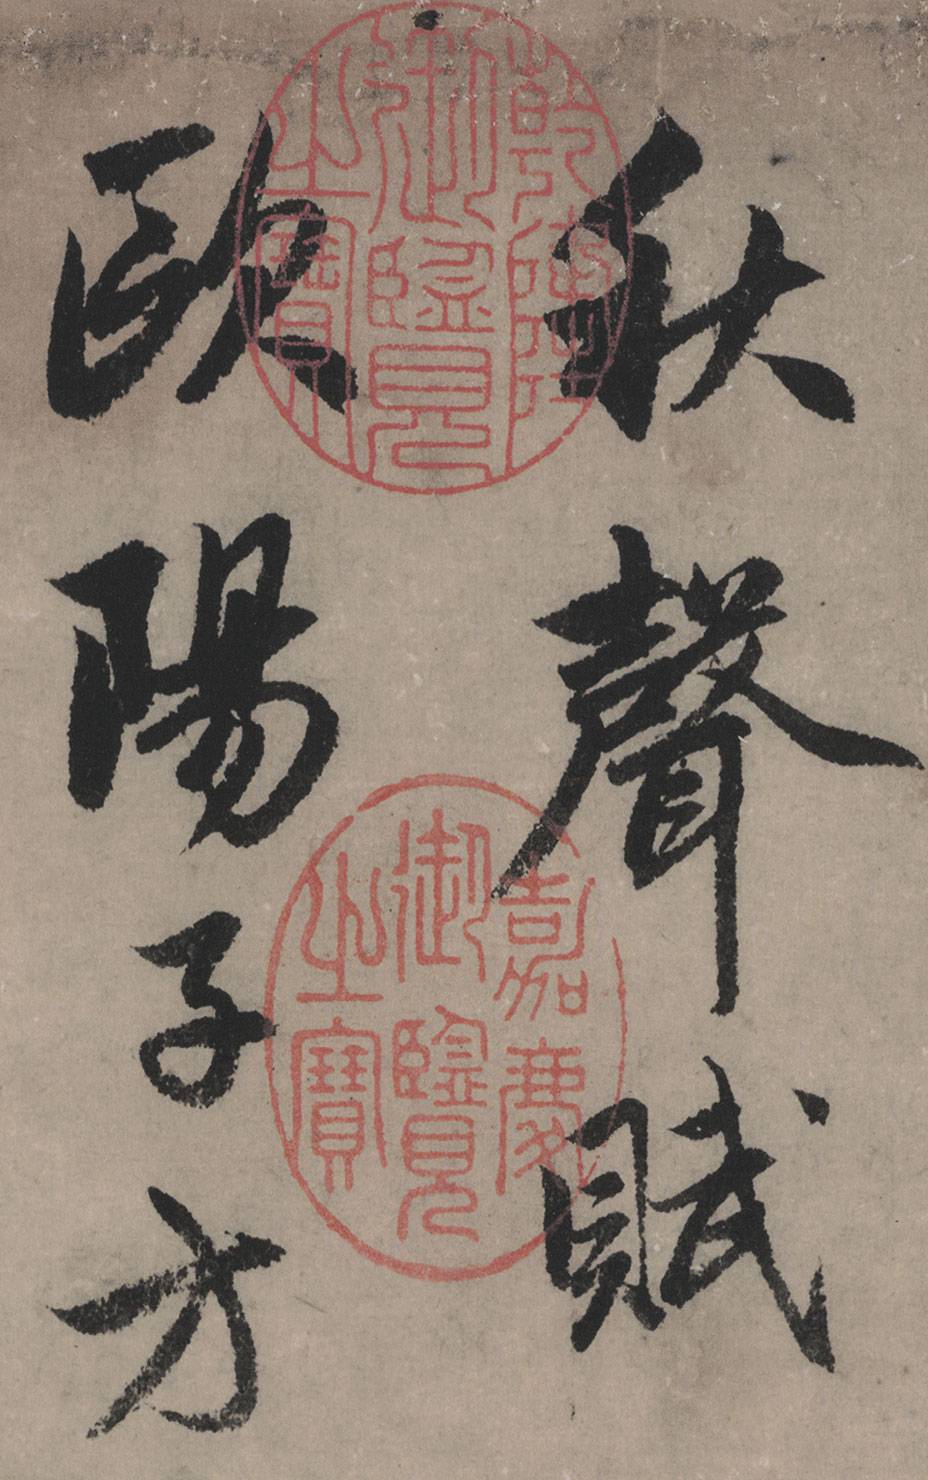 秋聲賦
歐陽子方
乾隆
御覽
之寶
嘉慶
御覽
之寶